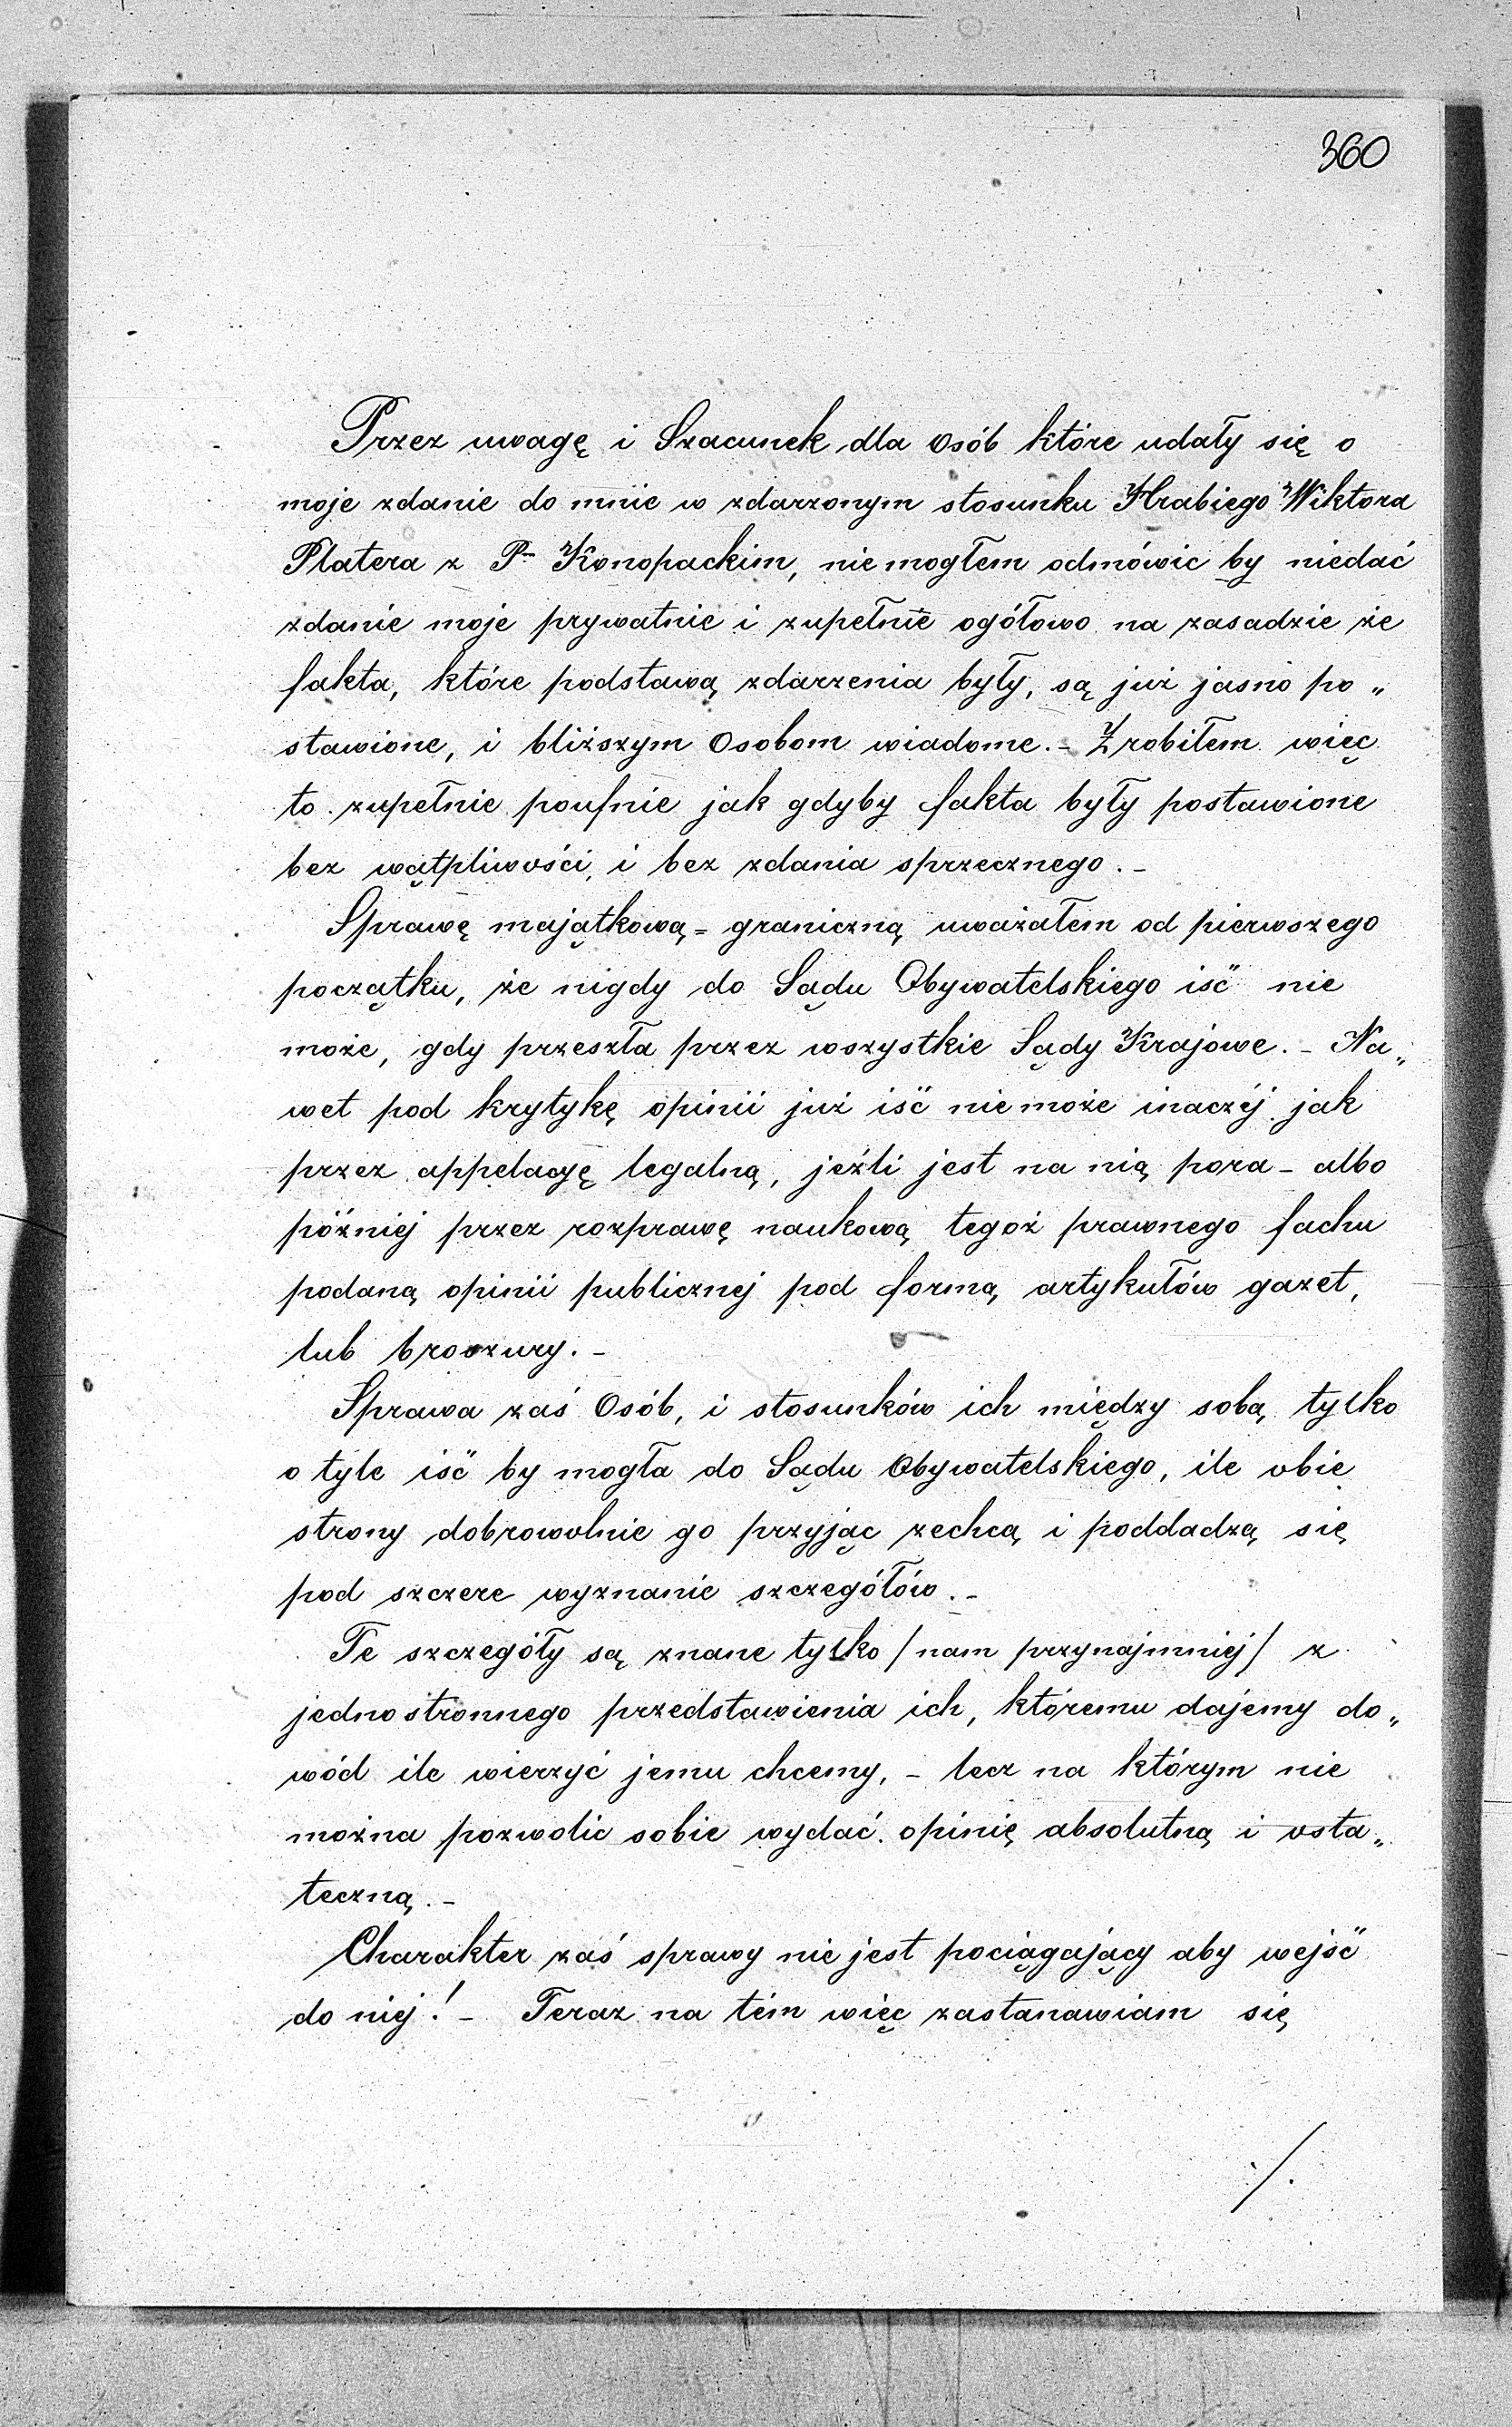 360
Przez uwagę i Szacunek dla osób które udały się o
moje zdanie do mnie w zdarzonym stosunku Hrabiego Wiktora
Platera z Pm Konopackim, nie mogłem odmówic by niedać
zdanie moje prywatnie i zupełnie ogółowo na zasadzie że
fakta, które podstawą zdarzenia były, są już jasno po„
stawione, i bliższym Osobom wiadome. – Zrobiłem więc
to zupełnie poufnie jak gdyby fakta były postawione
bez wątpliwości, i bez zdania sprzecznego. –
Sprawę majątkową = graniczną uważałem od pierwszego
początku, że nigdy do Sądu Obywatelskiego iść nie
może, gdy przeszła przez wszystkie Sądy Krajowe. – Na„
wet pod krytykę opinii już iść nie może inaczéj jak
przez appelacyę legalną, jeźli jest na nią pora – albo
później przez rozprawę naukową tegoż prawnego fachu
podaną opinii publicznej pod formą artykułów gazet,
lub broszury. –
Sprawa zaś Osób, i stosunków ich między sobą tylko
o tyle iść by mogła do Sądu Obywatelskiego, ile obie
strony dobrowolnie go przyjąc zechcą i poddadzą się
pod szczere wyznanie szczegółów. –
Te szczegóły są znane tylko / nam przynajmniej / z
jednostronnego przedstawienia ich, któremu dajemy do„
wód ile wierzyć jemu chcemy, – lecz na którym nie
można pozwolic sobie wydać opinię absolutną i osta„
teczną. –
Charakter zaś sprawy nie jest pociągający aby wejść
do niej! – Teraz na tém więc zastanawiam się
./.